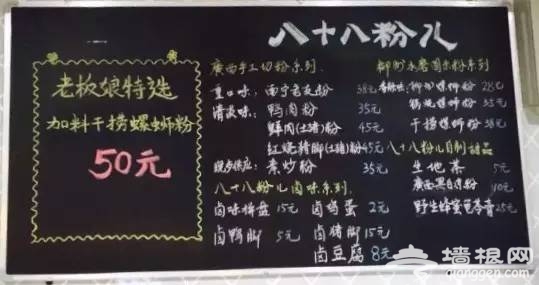 八十八粉儿
老板娘特选
加料干捞螺蛳粉
50元
廣西手工切粉系列
重口味: 南宁老友粉 38元
清淡味: 鸭肉粉 35元
鲜肉(土猪)粉 45元
红烧猪脚(土猪)粉 45元
晚点供应: 素炒粉 35元
八十八粉儿卤味系列
卤味拼盘 15元 卤鸡蛋 2元
卤鸭脚 5元 卤猪脚 15元
卤豆腐 8元
柳州水磨圆米粉系列
柳州螺蛳粉 28元
螺蛳粉 35元
干捞螺蛳粉 38元
八十八粉儿自制甜品
生地茶 5元
10元
野生蜂蜜龟苓膏 25元
墙根网
qianggen.com